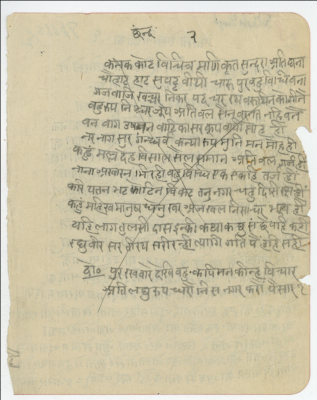 छन्द ३
कनक कोट विचित्र मणि कृत सुन्दरा अति घना
चौहाट हाट सुघट्ट वीथी चारु पुर बहु विधि बना
गज वाजि खच्चर निकर पद चर रथ वरूथनि को गिने
बहु रूप निश्चर जूथ अति बल सेन वरनत नहि बन
वन बाग उपवन वाटिका सर कूप वापी सोहहीं
नर नाग सुर गन्धर्व कन्या रूप मुनि मन मोहहीं
कहुं मल्ल देह विसाल सैल समान अति बल गर्जहीं
नाना अखारन भिरहीं बहु विधि एक एकहिं तर्जहीं
करि यतन भट कोटिन विकट तनु नगर चहुं दिस रक्षहीं
कहुं महिष मानुष धेनु खर अज खल निसाचर भक्षहीं
यहि लागि तुलसी दास इनकी कथा कछु
रघुवीर सर तीरथ सरीरन्ही त्यागि गति पै हैं सही
दो० पुर रखवारे देखि बहु कपि मन कीन्ह विचार
अति लघु रूप धरों निस नगर करों पैसार